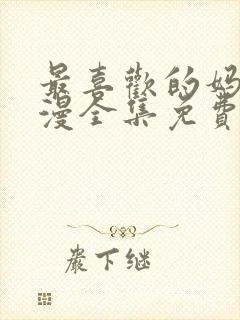 最喜歡的妈
漫全集免費
嚴下继